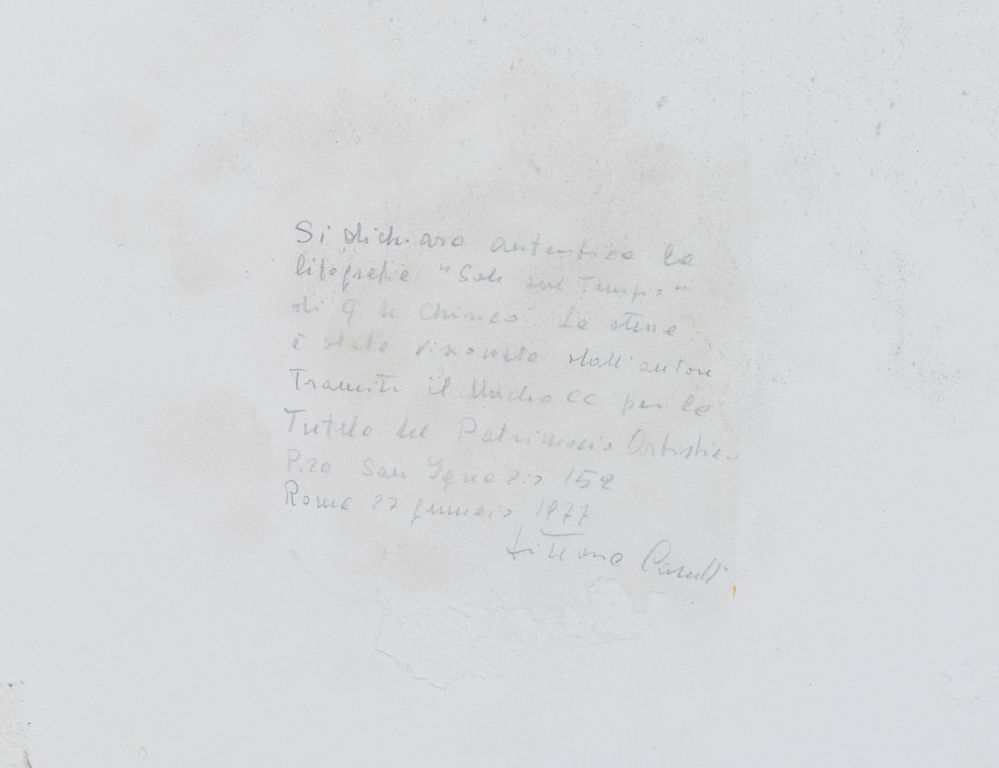 Si dichiara autentica la
litografia "Sole sul Tempio"
di G de Chirico. La stessa
è stata visionata dall'autore
Tramite il Nucleo CC per la
Tutela del Patrimonio Artistico
P.za San Ignazio 152
Roma 27 gennaio 1977